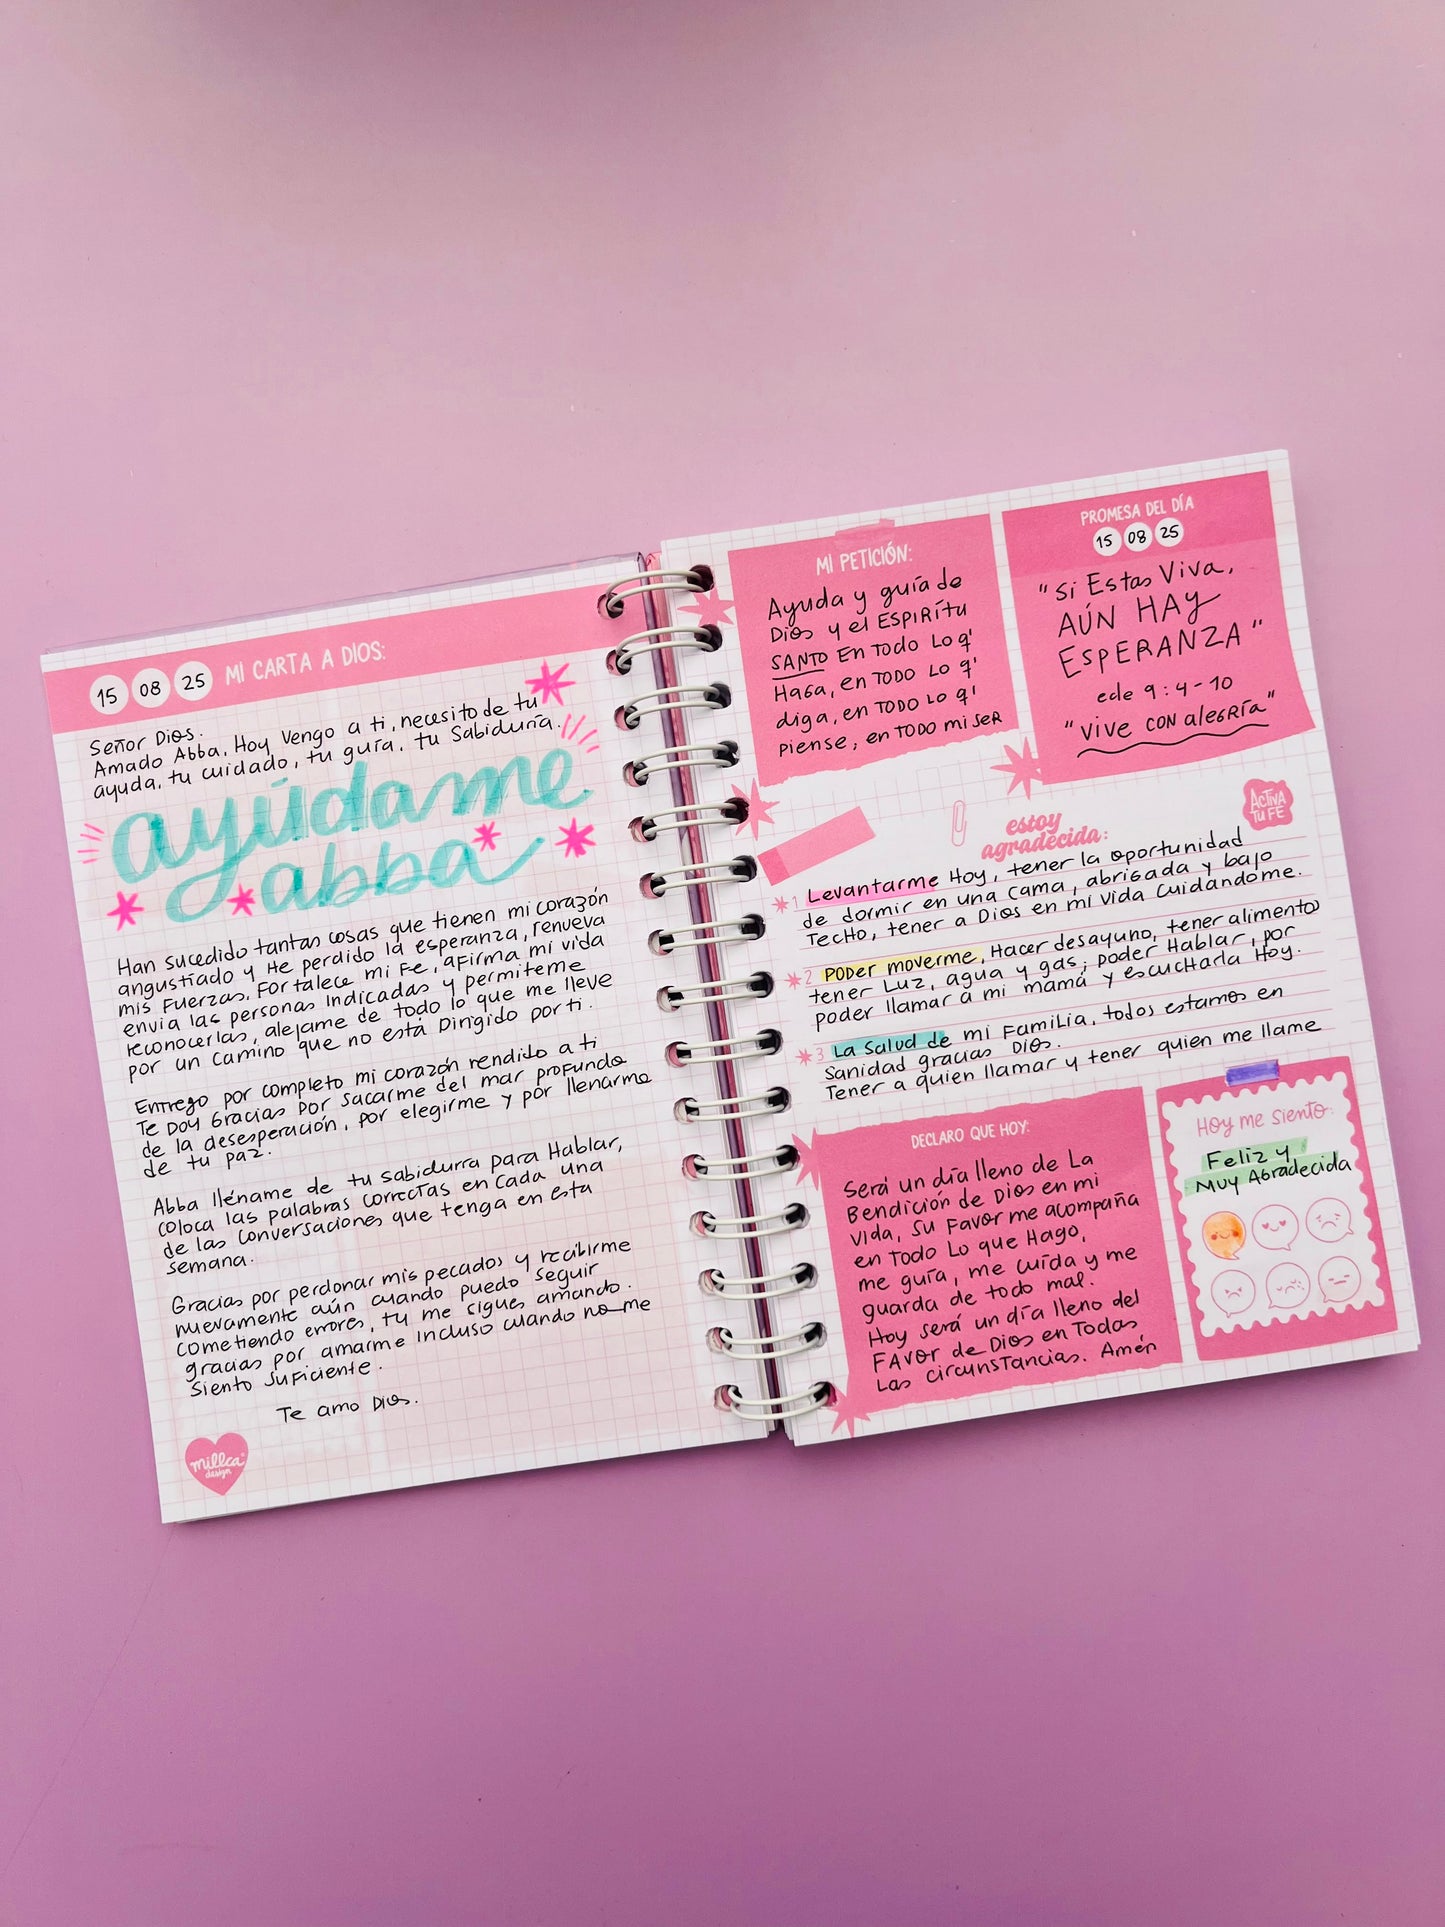 15 08 25 MI CARTA A DIOS:
Señor Dios.
Amado Abba, Hoy vengo a ti, necesito de tu
ayuda, tu cuidado, tu guía, tu sabiduría.
ayúdame
abba
Han sucedido tantas cosas que tienen mi corazón
angustiado y He perdido la esperanza, renueva
mis Fuerzas, Fortalece mi Fe, aFirma mi vida
envia las personas indicadas y permiteme
reconocerlas, alejame de todo lo que me lleve
por un camino que no está Dirigido por ti.
Entrego por completo mi corazón rendido a ti
Te Doy Gracias por sacarme del mar profundo
de la desesperación, por elegirme y por llenarme
de tu paz.
Abba lléname de tu sabidurra para Hablar,
coloca las palabras correctas en cada una
de las conversaciones que tenga en esta
semana.
Gracias por perdonar mis pecados y recibirme
nuevamente aún cuando puedo seguir
cometiendo errores, tu me sigues amando.
gracias por amarme incluso cuando no me
siento suficiente.
Te amo Dios.
millca
design
MI PETICIÓN:
Ayuda y guía de
Dios y el ESPIRítu
SANTO EN Todo Lo q'
Haga, en TODO Lo q'
diga, en TODO Lo q'
piense, en TODO mi SER
PROMESA DEL DÍA
15 08 25
"Si Estas Viva,
AÚN HAY
ESPERANZA"
ecle 9:4-10
"vive CON alegRía"
ACTIVA
TU FE
estoy
agradecida:
1 Levantarme Hoy, tener la oportunidad
de dormir en una cama, abrigada y bajo
TecHo, tener a Dios en mi vida cuidandome.
2 PODER moverme, Hacer desayuno, tener alimentos
tener Luz, agua y gas, poder Hablar, por
poder llamar a mi mamá y escucHarla Hoy.
3 La salud de mi Familia, todos estamos en
sanidad gracias Dios.
Tener a quien llamar y tener quien me llame
DECLARO QUE HOY:
Será un día lleno de La
Bendición de Dios en mi
vida, su Favor me acompaña
en Todo Lo que Hago,
me guía, me cuida y me
guarda de todo mal.
Hoy será un día lleno del
FAvor de Dios en Todas
Las circunsTancias. Amén
Hoy me siento:
Feliz y
Muy Agradecida